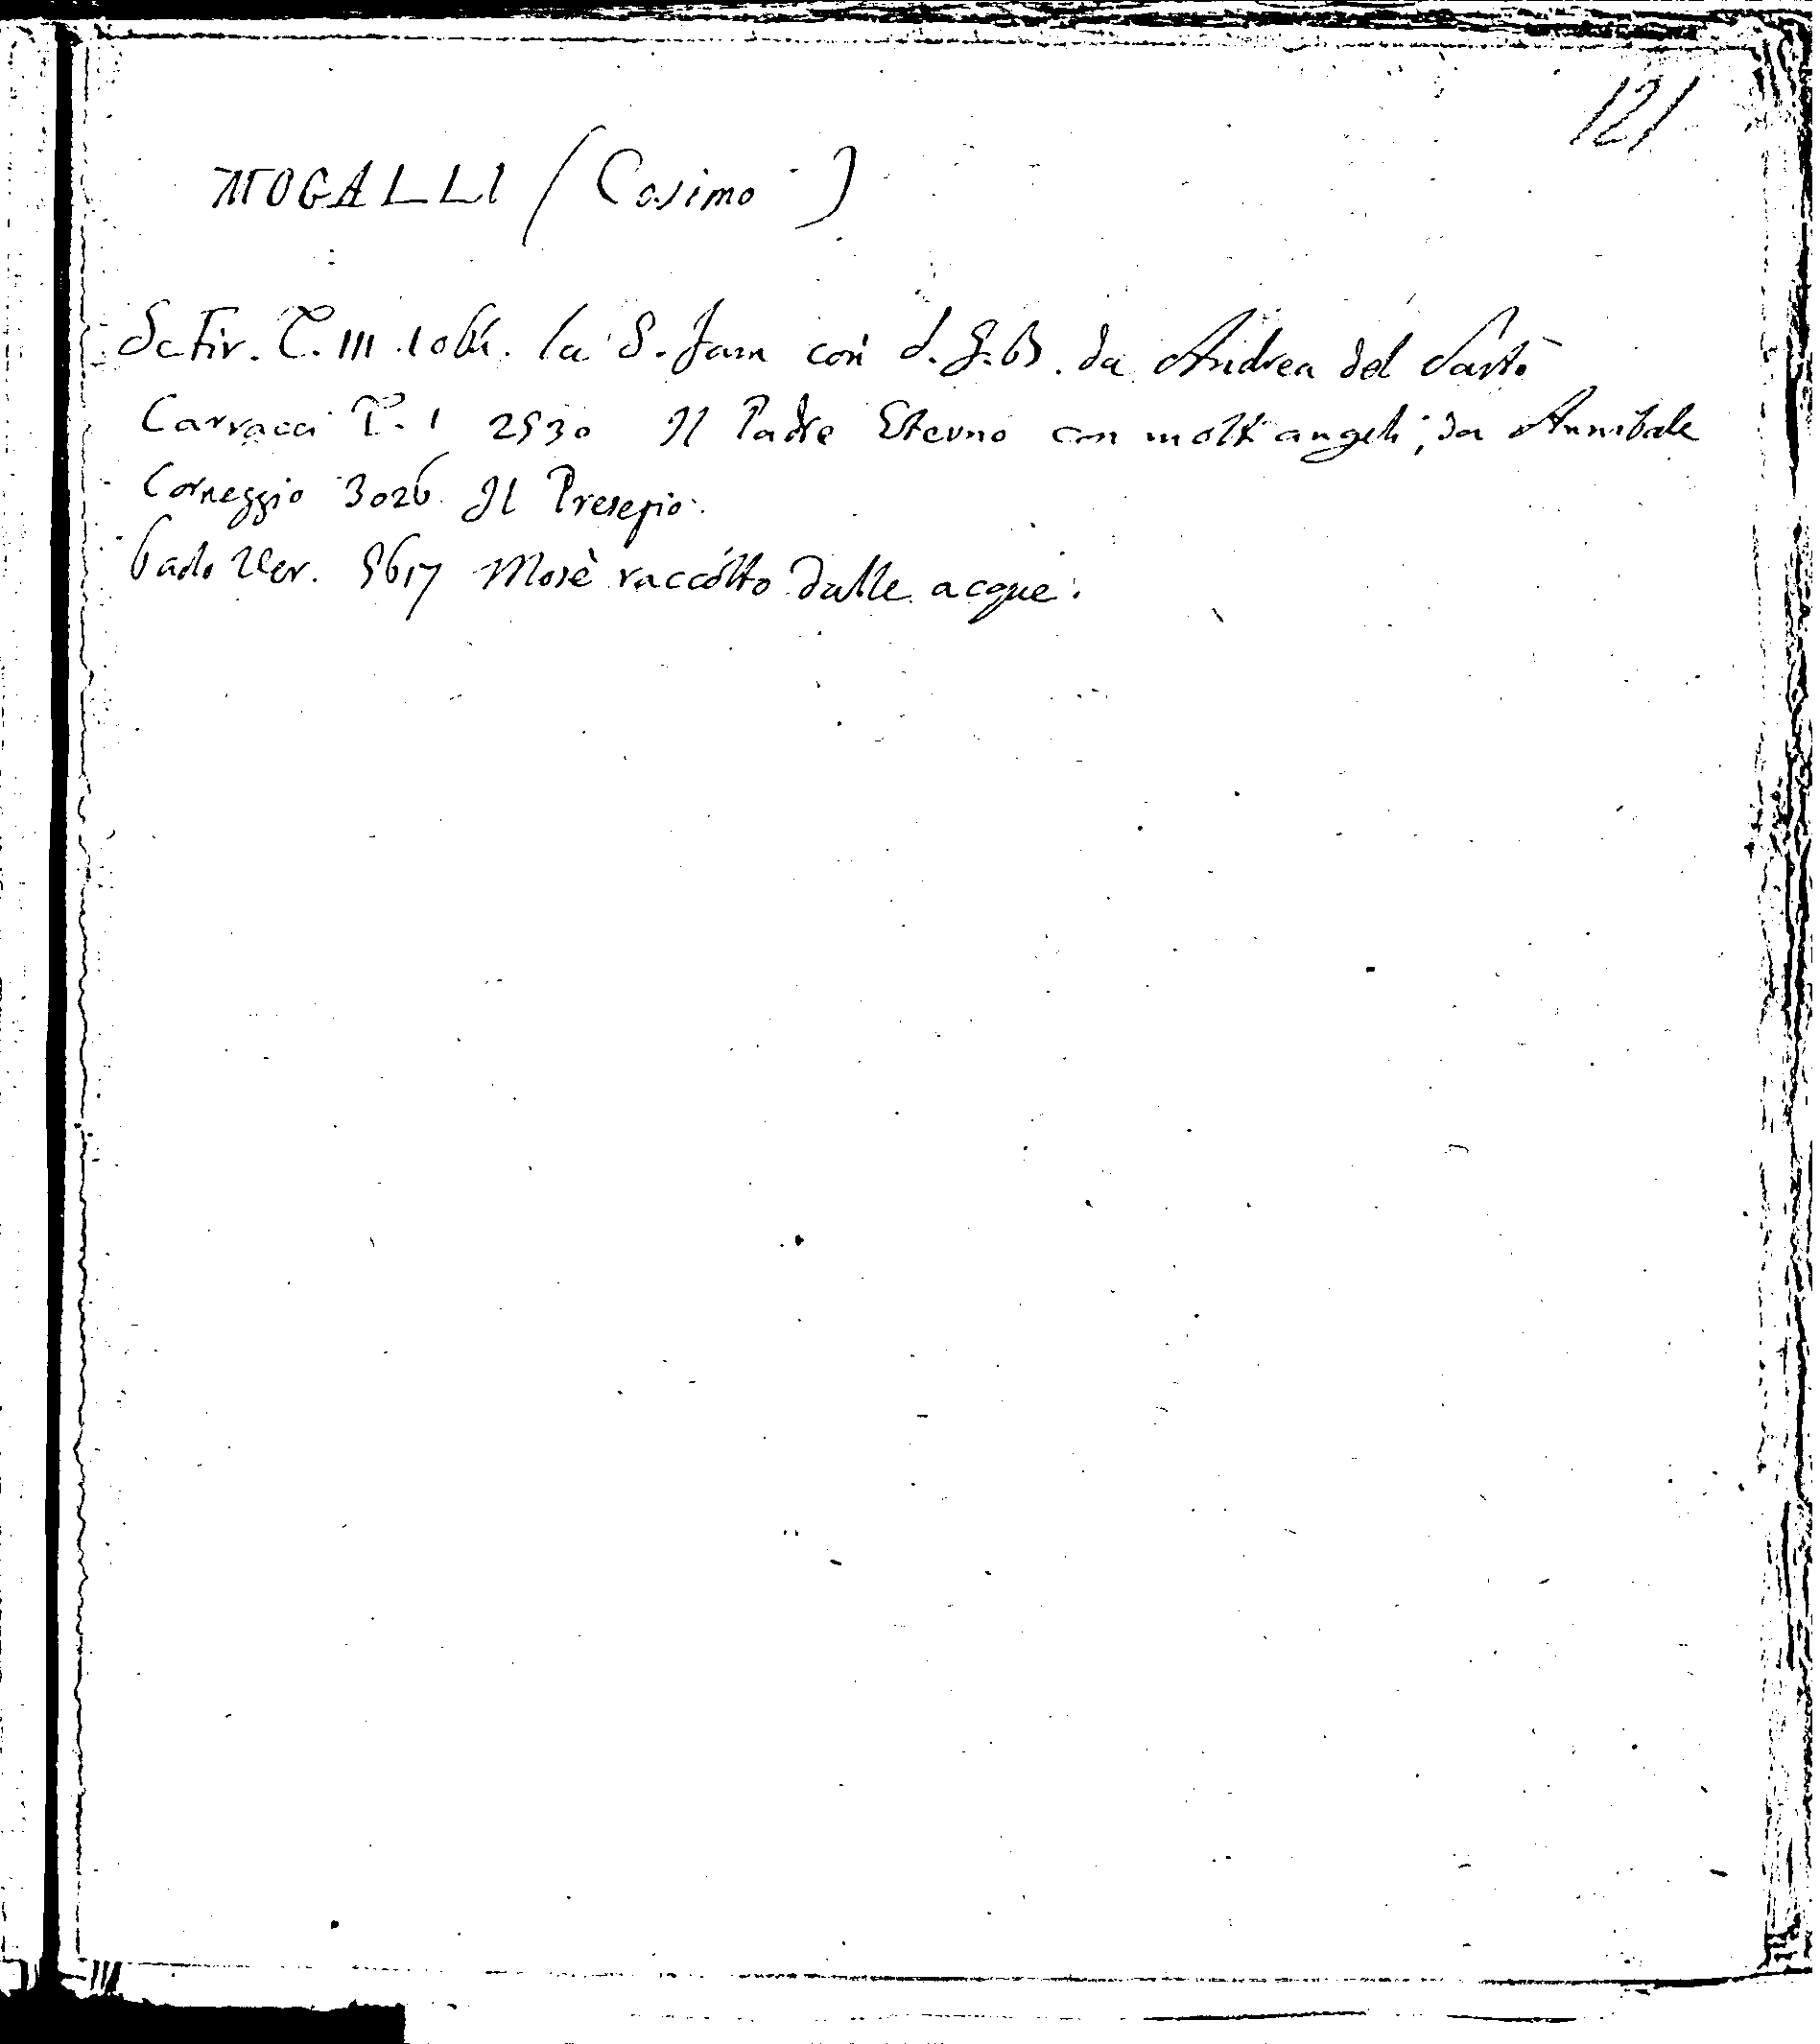 121
MOGALLI (Cosimo)
Sc Fir. T. III. la S. Fam con S. G. B. da Andrea del Sarto
Carracci T. 1 2530 Il Padre Eterno con molti angeli, da Annibale
Correggio 3026 Il Presepio.
Paolo Ver. 5617 Mosè raccolto dalle acque.